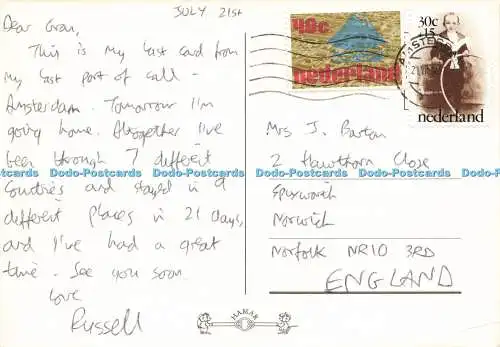 JULY 21st
Dear Gran,
This is my last card from
my last port of call -
Amsterdam. Tomorrow I'm
going home. Altogether I've
been through 7 different
countries and stayed in 9
different places in 21 days,
and I've had a great
time. See you soon.
Love
Russell
40c
nederland
30c
+15
nederland
AMSTERD
Mrs J. Barton
2 Hawthorn Close
Spixworth
Norwich
Norfolk NR10 3RD
ENGLAND
HAMAR
Dodo-Postcards Dodo-Postcards Dodo-Postcards Dodo-Postcards Dodo-Postcards